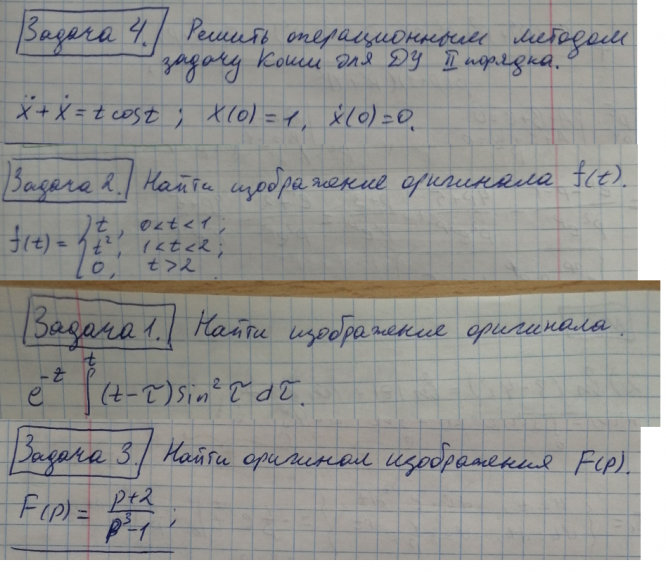 Задача 4. Решить операционным методом
задачу Коши для ДУ II порядка.
ẍ + ẋ = t cos t ; x(0) = 1, ẋ(0) = 0.
Задача 2. Найти изображение оригинала f(t).
f(t) = { t, 0<t<1;
t², 1<t<2;
0, t>2
Задача 1. Найти изображение оригинала.
e^{-t} ∫^t (t-τ) sin² τ dτ.
Задача 3. Найти оригинал изображения F(p).
F(p) = (p+2)/(p³-1) ;